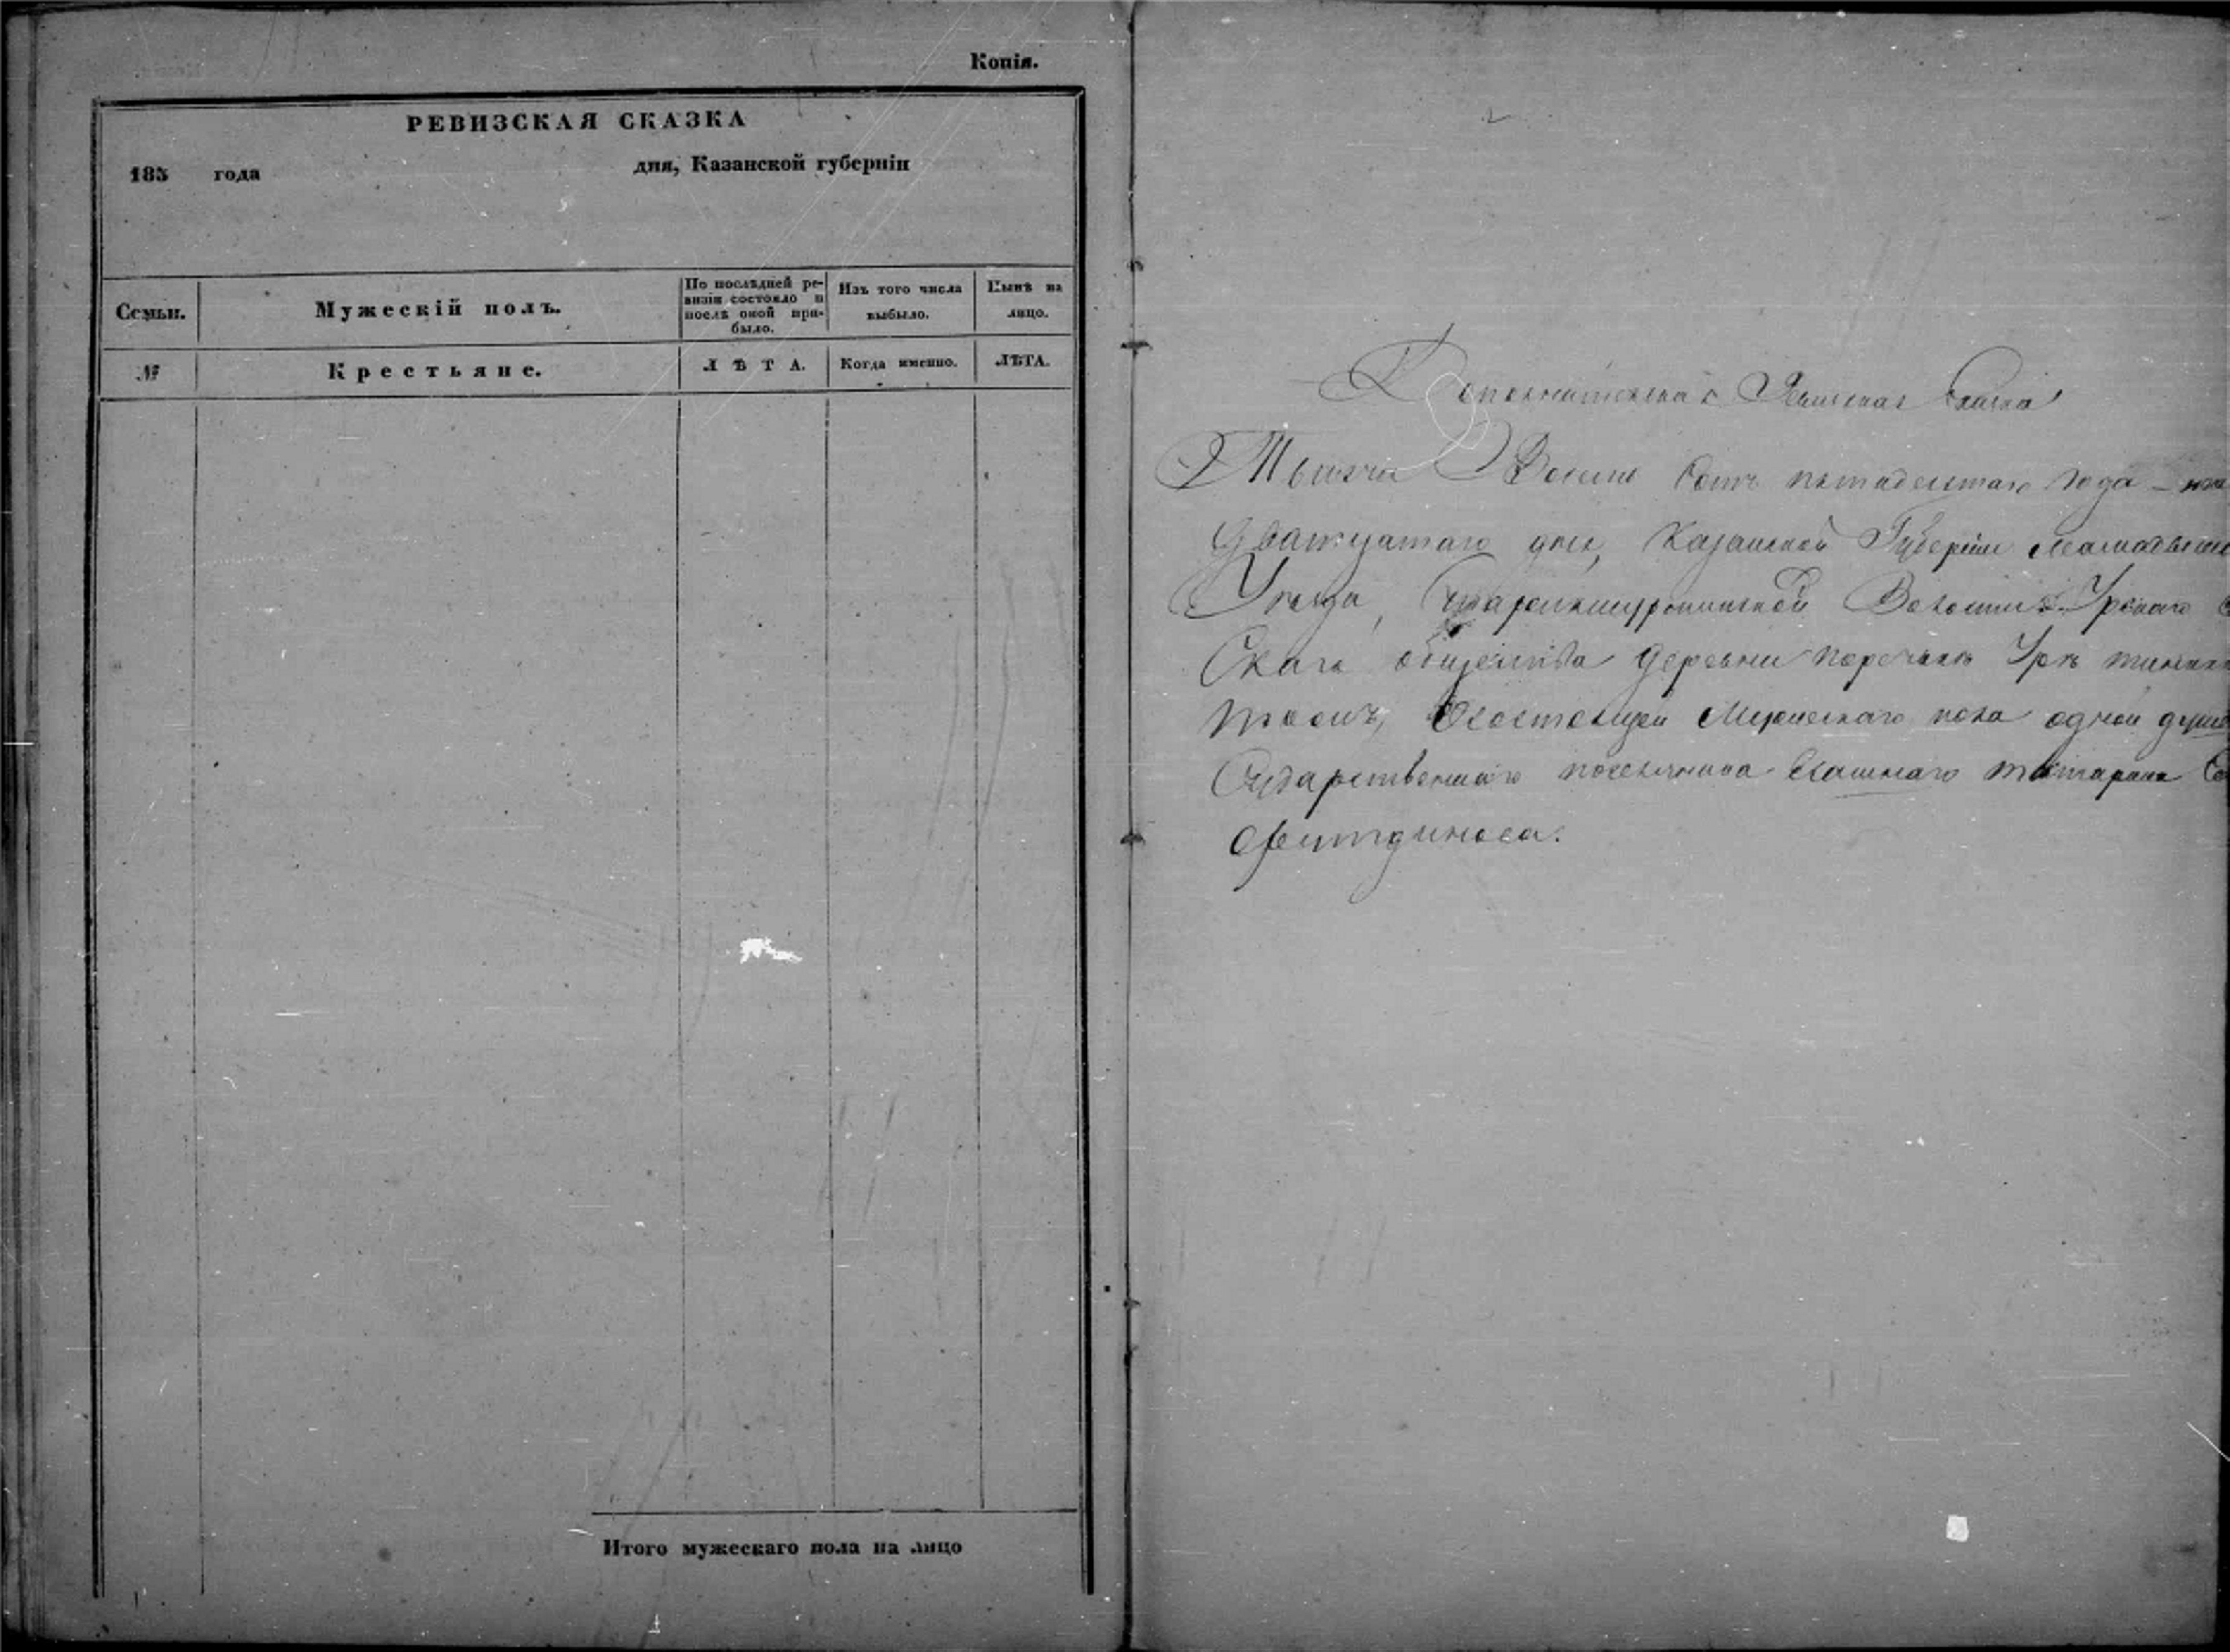 Копія.
РЕВИЗСКАЯ СКАЗКА
185 года дня, Казанской губерніи
Семьи. Мужескій полъ. По послѣдней ревизіи состояло и послѣ оной прибыло. Изъ того числа выбыло. Нынѣ на лицо.
№ Крестьяне. ЛѢТА. Когда именно. ЛѢТА.
Итого мужескаго пола на лицо
Дополнительная Ревизская Сказка
Тысяча Восемь Сотъ пятидесятаго года
Двадцатаго дня, Казанской Губерніи Мамадышс
Уѣзда, Волости Урскаго
Скаго общества Деревни
Мужескаго пола одной души
Сударственнаго поселянина Ясашнаго татарина